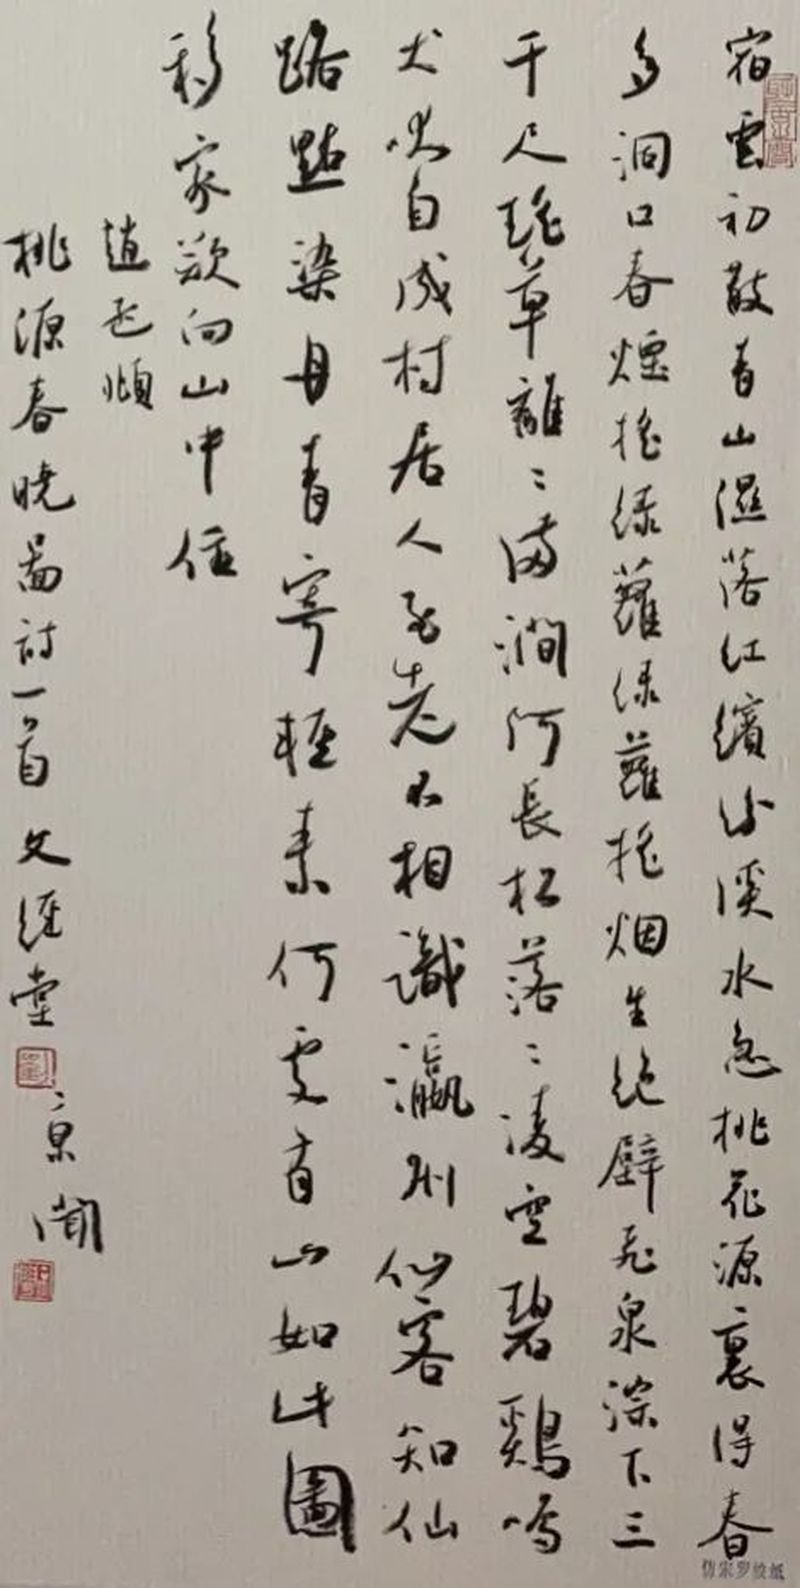 宿雲初散青山濕落紅繽紛溪水急桃花源裏得春
多洞口春煙搖綠蘿綠蘿搖烟生絕壁飛泉淙下三
千尺瑤草離〻滿澗阿長松落〻凌空碧鷄鳴
犬吠自成村居人至老不相識瀛洲仙客知仙
路點染丹青寄輕素何處有山如此圖
移家欲向山中住
趙孟頫
桃源春曉圖詩一首 文經堂
仿宋罗纹纸